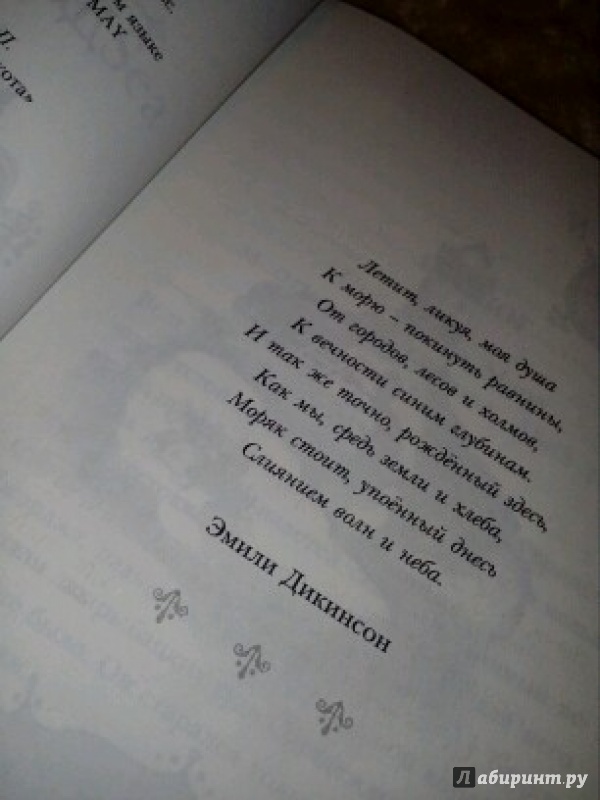 м языке
MAY
П.
кота»
Летит, ликуя, моя душа
К морю – покинуть равнины,
От городов, лесов и холмов,
К вечности синим глубинам.
И так же точно, рождённый здесь,
Как мы, средь земли и хлеба,
Моряк стоит, упоённый днесь
Слиянием волн и неба.
Эмили Дикинсон
Лабиринт.ру